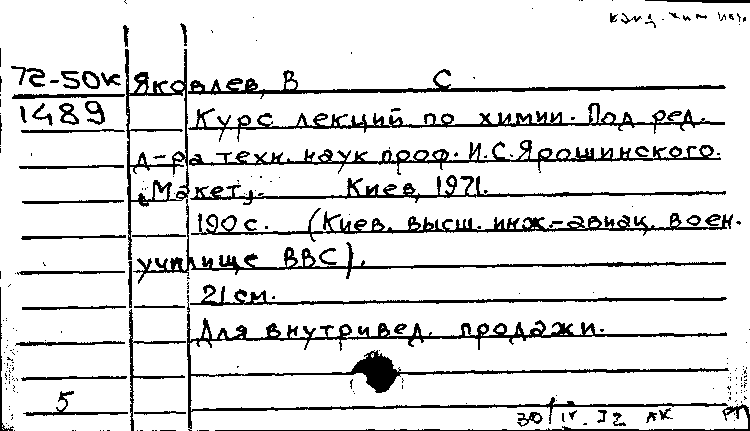 канд. хим наук
72-50к Яковлев, В С
1489 Курс лекций по химии. Под ред.
д-ра техн. наук проф. И.С.Ярошинского.
„Макет„. Киев, 1971.
190 с. (Киев. высш. инж.-авиац. воен.
училище ВВС).
21 см.
Для внутривед. продажи.
5
30/IV.72 АК РП